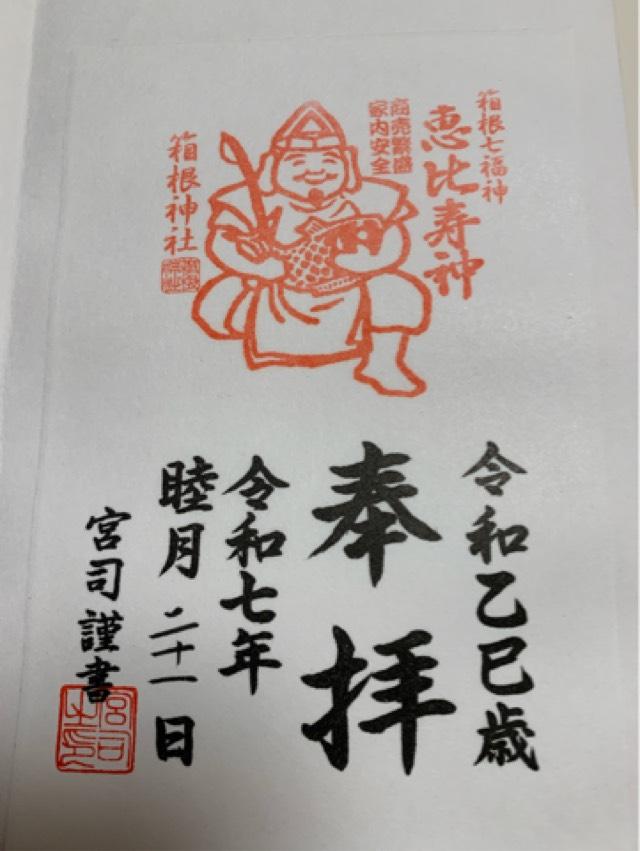 箱根七福神
恵比寿神
商売繁盛
家内安全
箱根神社
令和乙巳歳
奉拝
令和七年
睦月二十一日
宮司謹書
宮司之印